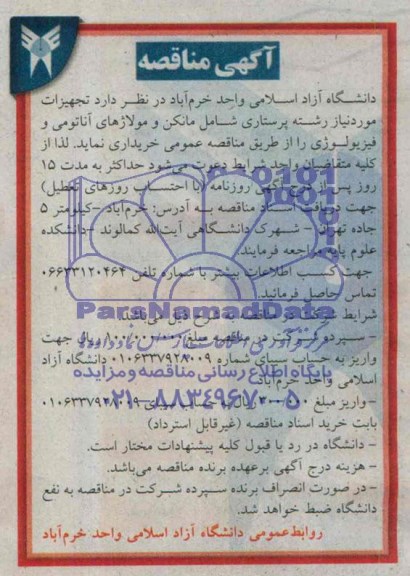 آگهی مناقصه
دانشگاه آزاد اسلامی واحد خرم‌آباد در نظر دارد تجهیزات
موردنیاز رشته پرستاری شامل مانکن و مولاژهای آناتومی و
فیزیولوژی را از طریق مناقصه عمومی خریداری نماید. لذا از
کلیه متقاضیان واجد شرایط دعوت می‌شود حداکثر به مدت ۱۵
روز پس از درج آگهی روزنامه (با احتساب روزهای تعطیل)
جهت دریافت اسناد مناقصه به آدرس: خرم‌آباد -کیلومتر ۵
جاده تهران - شهرک دانشگاهی آیت‌الله کمالوند -دانشکده
علوم پایه مراجعه فرمایند.
جهت کسب اطلاعات بیشتر با شماره تلفن ۰۶۶۳۳۱۲۰۴۶۴
تماس حاصل فرمائید.
شرایط شرکت در مناقصه به شرح ذیل می‌باشد:
- سپرده شرکت در مناقصه مبلغ ریال جهت
واریز به حساب سیبای شماره ۰۱۰۶۳۳۷۹۲۸۰۰۹ دانشگاه آزاد
اسلامی واحد خرم‌آباد
-واریز مبلغ ریال به حساب سیبای ۰۱۰۶۳۳۷۹۲۸۰۰۹
بابت خرید اسناد مناقصه (غیرقابل استرداد)
- دانشگاه در رد یا قبول کلیه پیشنهادات مختار است.
- هزینه درج آگهی برعهده برنده مناقصه می‌باشد.
-در صورت انصراف برنده سپرده شرکت در مناقصه به نفع
دانشگاه ضبط خواهد شد.
روابط‌عمومی دانشگاه آزاد اسلامی واحد خرم‌آباد
ParsNamadData
پایگاه اطلاع رسانی مناقصه و مزایده
۰۲۱-۸۸۳۴۹۶۷۰-۵